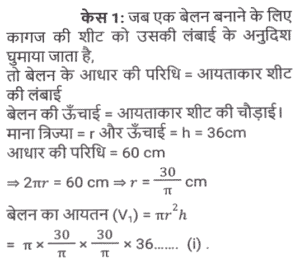 केस 1: जब एक बेलन बनाने के लिए
कागज की शीट को उसकी लंबाई के अनुदिश
घुमाया जाता है,
तो बेलन के आधार की परिधि = आयताकार शीट
की लंबाई
बेलन की ऊँचाई = आयताकार शीट की चौड़ाई।
माना त्रिज्या = r और ऊँचाई = h = 36cm
आधार की परिधि = 60 cm
⇒ 2πr = 60 cm ⇒ r = 30/π cm
बेलन का आयतन (V₁) = πr²h
= π × 30/π × 30/π × 36....... (i) .